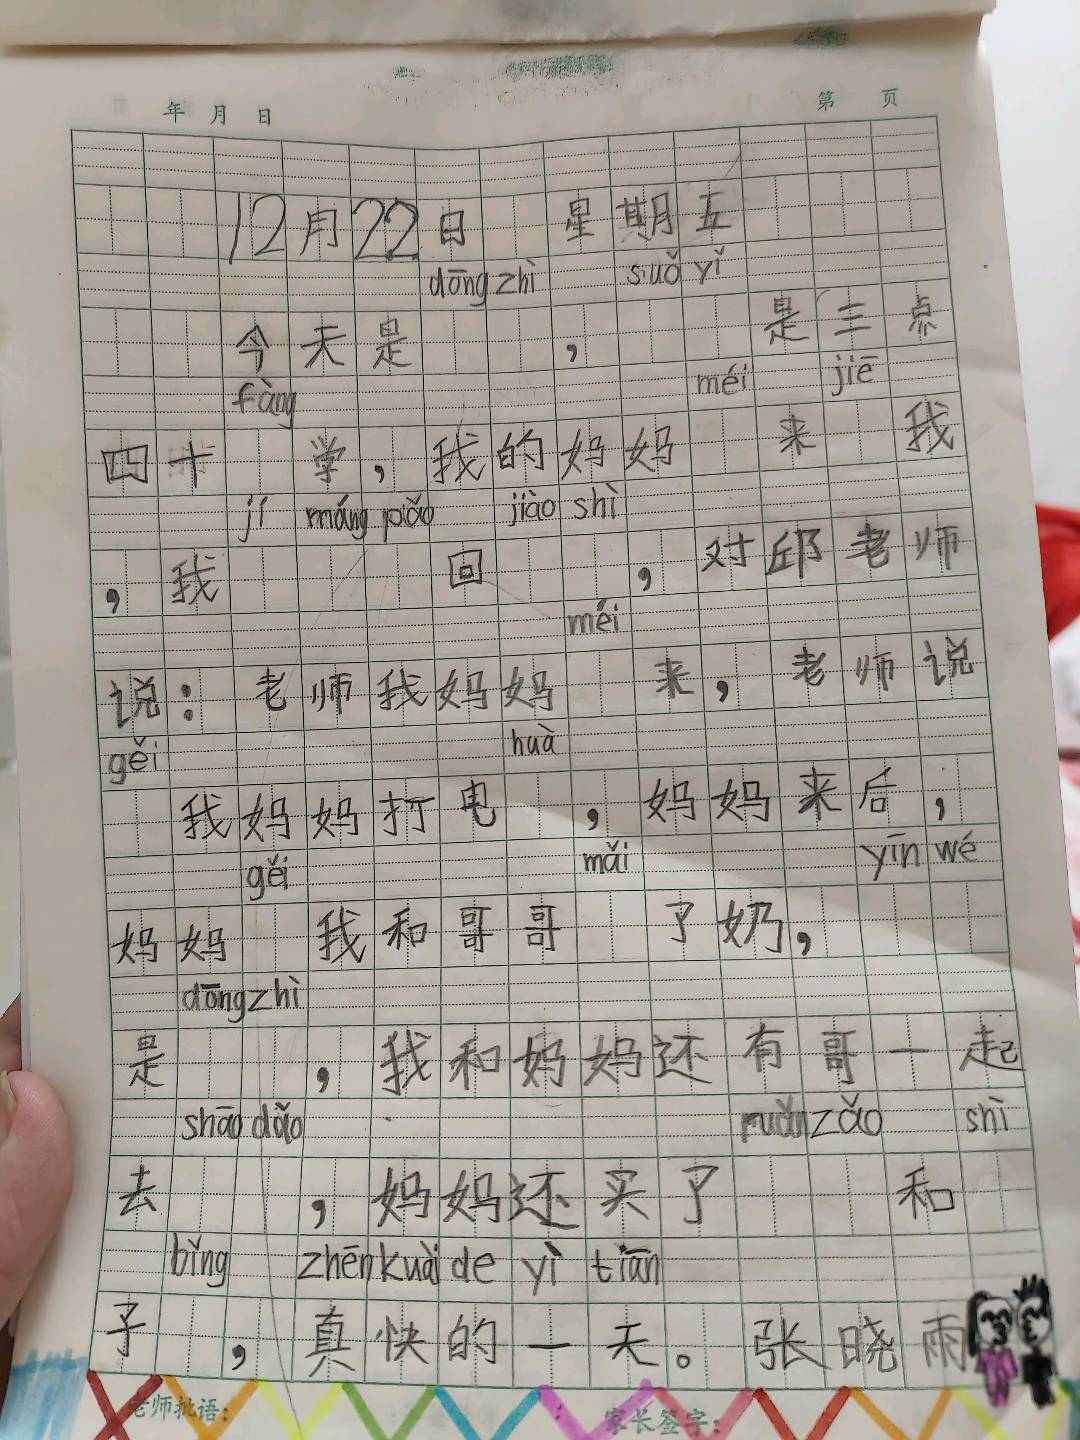 年 月 日 第 页
12月22日 星期五
dōng zhì suǒ yǐ
今天是 , 是三点
fàng méi jiē
四十 学,我的妈妈 来 我
jí máng pǎo jiào shì
,我 回 ,对邱老师
méi
说:老师我妈妈 来,老师说
gěi huà
我妈妈打电 ,妈妈来后,
gěi mǎi yīn wé
妈妈 我和哥哥 了奶,
dōng zhì
是 ,我和妈妈还有哥一起
shāo dǎo zǎo shì
去 ,妈妈还买了 和
bǐng zhēn kuài de yì tiān
子 ,真快的一天。张晓雨
老师批语: 家长签字: